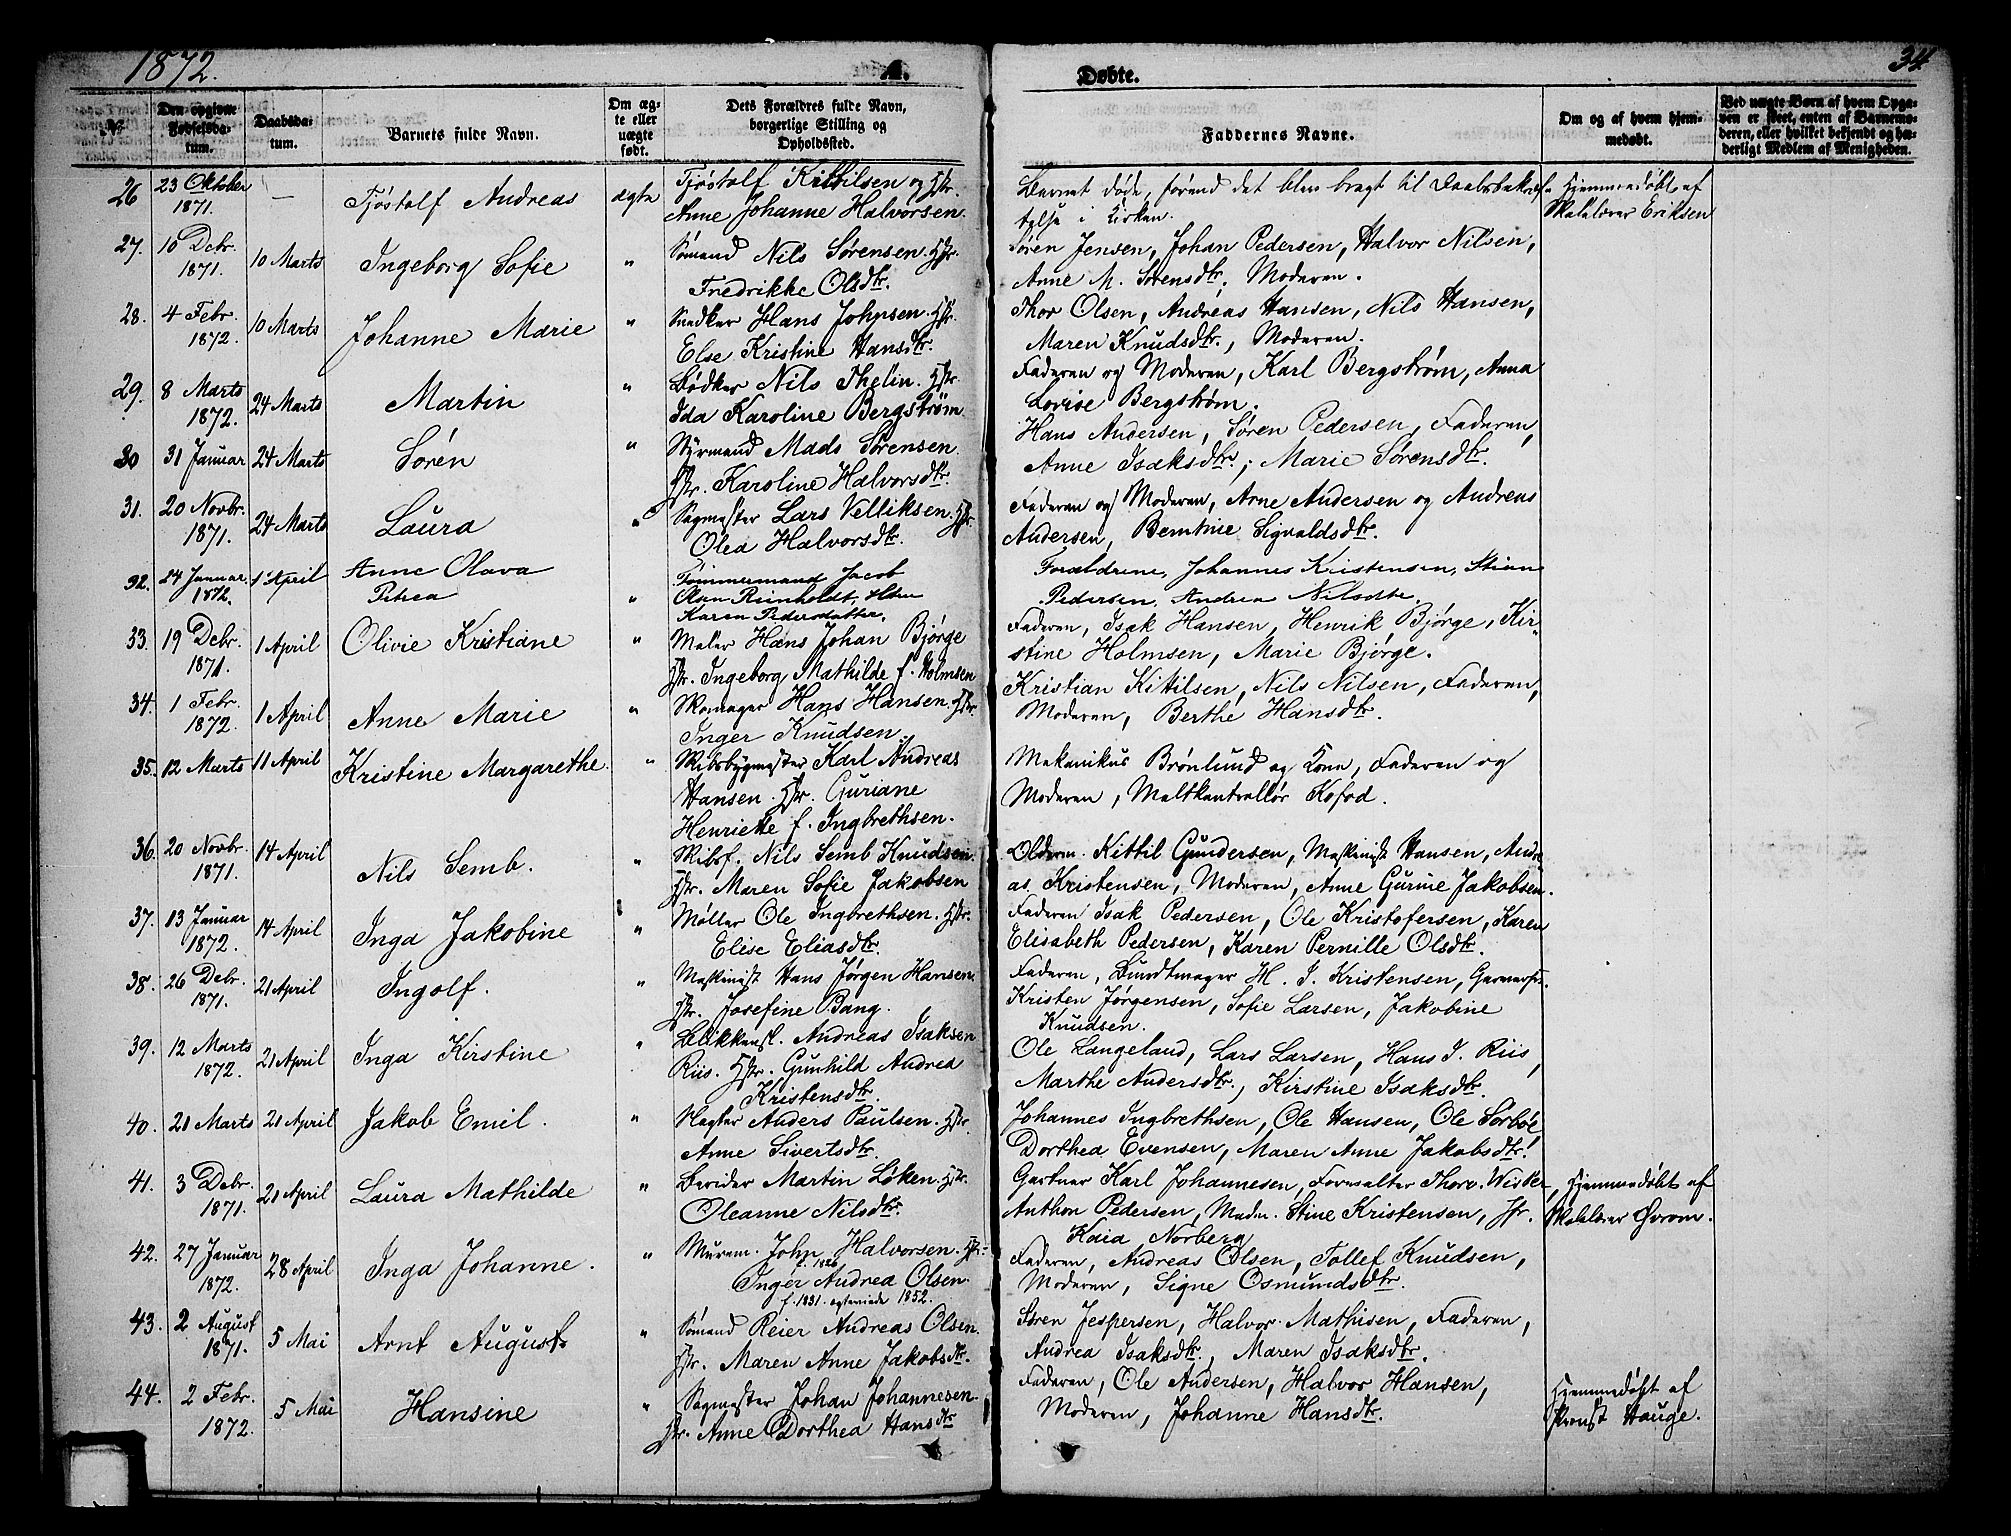 1872.
A.
Døbte.
34
№
Den opgivne Fødselsda-
tum.
Daabsda-
tum.
Barnets fulde Navn.
Om æg-
te eller
uægte
født.
Dets Forældres fulde Navn,
borgerlige Stilling og
Opholdssted.
Faddernes Navne.
Om og af hvem hjem-
medøbt.
Ved uægte Børn af hvem Opga-
ven er skeet, enten af Barnemo-
deren, eller hvilket bekjendt og hæ-
derligt Medlem af Menigheden.
26 23 Oktober — Tjøstolf Andreas ægte Tjøstolf Kittilsen og Hstr. Barnet døde, førend det blev bragt til Daabsbekræf- Hjemmedøbt af
1871. Anne Johanne Halvorsen. telse i Kirken. Skolelærer Eriksen
27. 10 Debr. 10 Marts Ingeborg Sofie " Sømand Nils Sørensen. Hstr. Søren Jensen, Johan Pedersen, Halvor Nilsen,
1871. Fredrikke Olsdtr. Anne M. Sørensdtr, Moderen.
28. 4 Febr. 10 Marts Johanne Marie " Snedker Hans Johnsen. Hstr. Thor Olsen, Andreas Hansen, Nils Hansen,
1872. Else Kristine Hansdtr. Maren Knudsdtr., Moderen.
29. 8 Marts 24 Marts Martin " Bødker Nils Thelin. Hstr. Faderen og Moderen, Karl Bergstrøm, Anna
1872. Ida Karoline Bergstrøm. Lovise Bergstrøm.
30 31 Januar 24 Marts Søren " Styrmand Mads Sørensen Hans Andersen, Søren Pedersen, Faderen,
Hstr. Karoline Halvorsdtr. Anne Isaksdtr., Marie Sørensdtr.
31. 20 Novbr. 24 Marts Laura " Sagmester Lars Velliksen. Hstr. Faderen og Moderen, Arne Andersen og Andreas
1871. Olea Halvorsdtr. Andersen, Berntine Sigvaldsdtr.
32. 24 Januar 1 April Anne Olava " Tømmermand Jacob Forældrene, Johannes Kristensen, Stian
1872. Petrea Olsen Reinholdt, Karen Pedersdatter. Pedersen, Andrea Nilsdtr.
33. 19 Debr. 1 April Olivie Kristiane " Maler Hans Johan Bjørge Faderen, Isak Hansen, Henrik Bjørge, Kir-
1871. Hstr. Ingeborg Mathilde f. Holmsen stine Holmsen, Marie Bjørge.
34. 1 Febr. 1 April Anne Marie " Skomager Hans Hansen. Hstr. Kristian Kittilsen, Nils Nilsen, Faderen,
1872. Inger Knudsen. Moderen, Berthe Hansdtr.
35. 12 Marts 11 April Kristine Margarethe. " Skibsbygmester Karl Andreas Mekanikus Brønlund og Kone, Faderen og
Hansen. Hstr. Guriane Moderen, Maltkontrollør Kofod.
Henriette f. Ingbrethsen.
36. 20 Novbr. 14 April Nils Semb. " Skibsf. Nils Semb Knudsen. Olderm. Kittil Gundersen, Maskinist Hansen, Andre-
1871. Hstr. Maren Sofie Jakobsen as Kristensen, Moderen, Anne Gurine Jakobsen.
37. 13 Januar 14 April Inga Jakobine " Møller Ole Ingbrethsen. Hstr. Faderen Isak Pedersen, Ole Kristofersen, Karen
1872. Elise Eliasdtr. Elisabeth Pedersen, Karen Pernille Olsdtr.
38. 26 Debr. 21 April Ingolf. " Maskinist Hans Jørgen Hansen. Faderen, Bundtmager H. J. Kristensen, Garversv.
1871. Hstr. Josefine Bang. Kristen Jørgensen, Sofie Larsen, Jakobine
Knudsen.
39. 12 Marts 21 April Inga Kirstine " Blikkensl. Andreas Isaksen Ole Langeland, Lars Larsen, Hans J. Riis,
1872. Riis. Hstr. Gunhild Andrea Marthe Andersdtr., Kirstine Isaksdtr.
Kristensdtr.
40. 21 Marts 21 April Jakob Emil. " Anders Paulsen. Hstr. Johannes Ingbrethsen, Ole Hansen, Ole Sørbøe,
Anne Sivertsdtr. Dorthea Evensen, Maren Anne Jakobsdtr.
41. 3 Debr. 21 April Laura Mathilde " Berider Martin Løken. Hstr. Gartner Karl Johannesen, Forvalter Thorv. Winther, Hjemmedøbt af
1871. Oleanne Nilsdtr. Anthon Pedersen, Madm. Stine Kristensen, Jfr. Skolelærer Øvrom.
Kaia Norberg
42. 27 Januar 28 April Inga Johanne. " Murem. John Halvorsen. Hstr. Faderen, Andreas Olsen, Tollef Knudsen,
f. 1826
1872. Inger Andrea Olsen. Moderen, Signe Osmundsdtr.
f. 1831. ægteviede 1852.
43. 2 August 5 Mai Arnt August " Sømand Reier Andreas Olsen. Søren Jespersen, Halvor Mathisen, Faderen,
1871. Hstr. Maren Anne Jakobsdtr. Andrea Isaksdtr., Maren Isaksdtr.
44. 2 Febr. 5 Mai Hansine " Sagmester Johan Johannesen. Faderen, Ole Andersen, Halvor Hansen, Hjemmedøbt af
1872. Hstr. Anne Dorthea Hansdtr Moderen, Johanne Hansdtr. Provst Hauge.